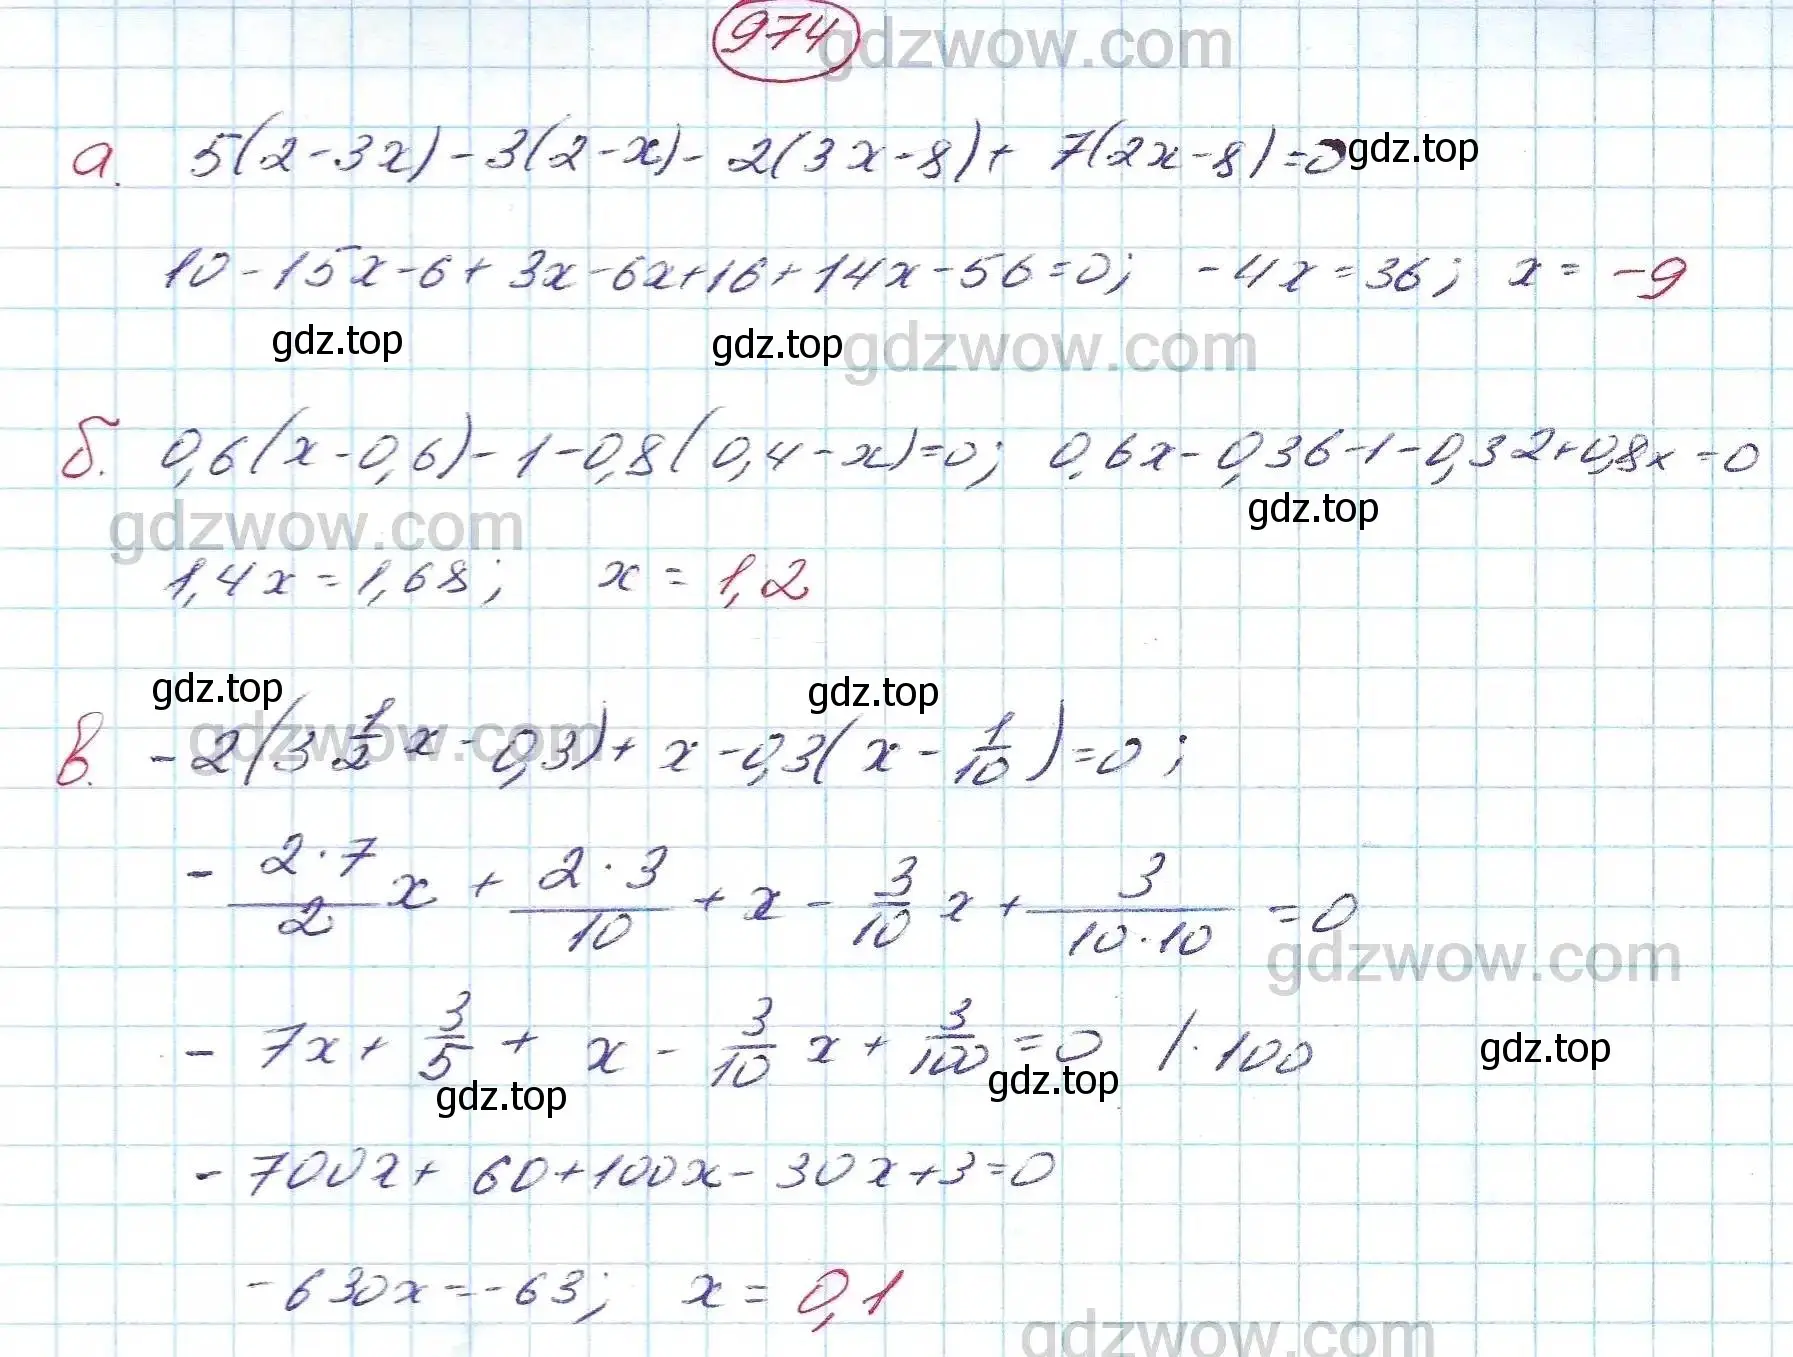 974 gdzwow.com
а. 5(2-3x)-3(2-x)-2(3x-8)+7(2x-8)=0 gdz.top
10-15x-6+3x-6x+16+14x-56=0; -4x=36; x=-9
gdz.top gdz.top gdzwow.com
б. 0,6(x-0,6)-1-0,8(0,4-x)=0; 0,6x-0,36-1-0,32+0,8x=0
gdzwow.com gdz.top
1,4x=1,68; x=1,2
gdz.top gdzwow.com gdz.top
в. -2(3 1/2 x-0,3)+x-0,3(x-1/10)=0;
-2·7/2 x+2·3/10+x-3/10 x+3/10·10=0
gdzwow.com
-7x+3/5+x-3/10 x+3/100=0 /·100 gdz.top
gdz.top gdz.top
-700x+60+100x-30x+3=0
-630x=-63; x=0,1
gdzwow.com